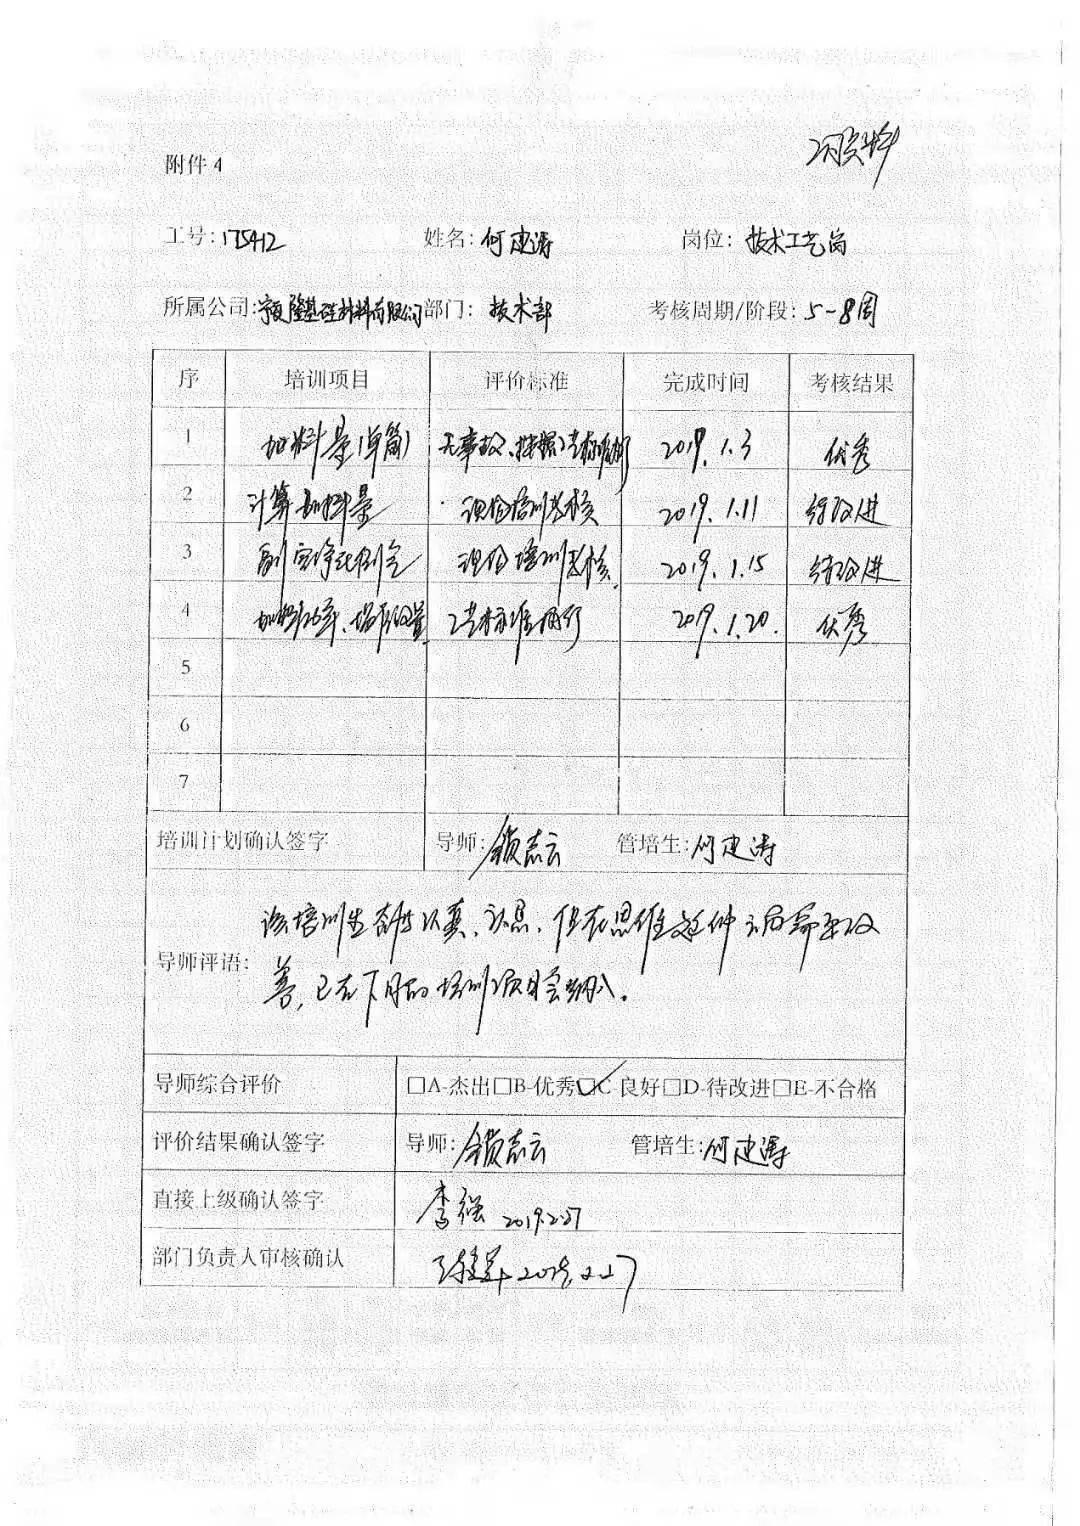 附件 4
工号: 175412 姓名: 何建涛 岗位: 技术工艺岗
所属公司: 宁夏隆基硅材料有限公司 部门: 技术部 考核周期/阶段: 5-8周
序 培训项目 评价标准 完成时间 考核结果
1 加料量(单筒) 无事故、按照工艺标准 2019.1.3 优秀
2 计算加料量 理论培训考核 2019.1.11 待改进
3 副室净化 理论培训考核 2019.1.15 待改进
4 加料功率、埚位设置 工艺标准执行 2019.1.20 优秀
5
6
7
培训计划确认签字 导师: 锁志云 管培生: 何建涛
导师评语: 该培训生态度认真、认思,但在思维延伸方面需要改
善,已在下月的培训项目会纳入。
导师综合评价 □A-杰出□B-优秀☑C-良好□D-待改进□E-不合格
评价结果确认签字 导师: 锁志云 管培生: 何建涛
直接上级确认签字 李强 2019.2.27
部门负责人审核确认 2019.2.27